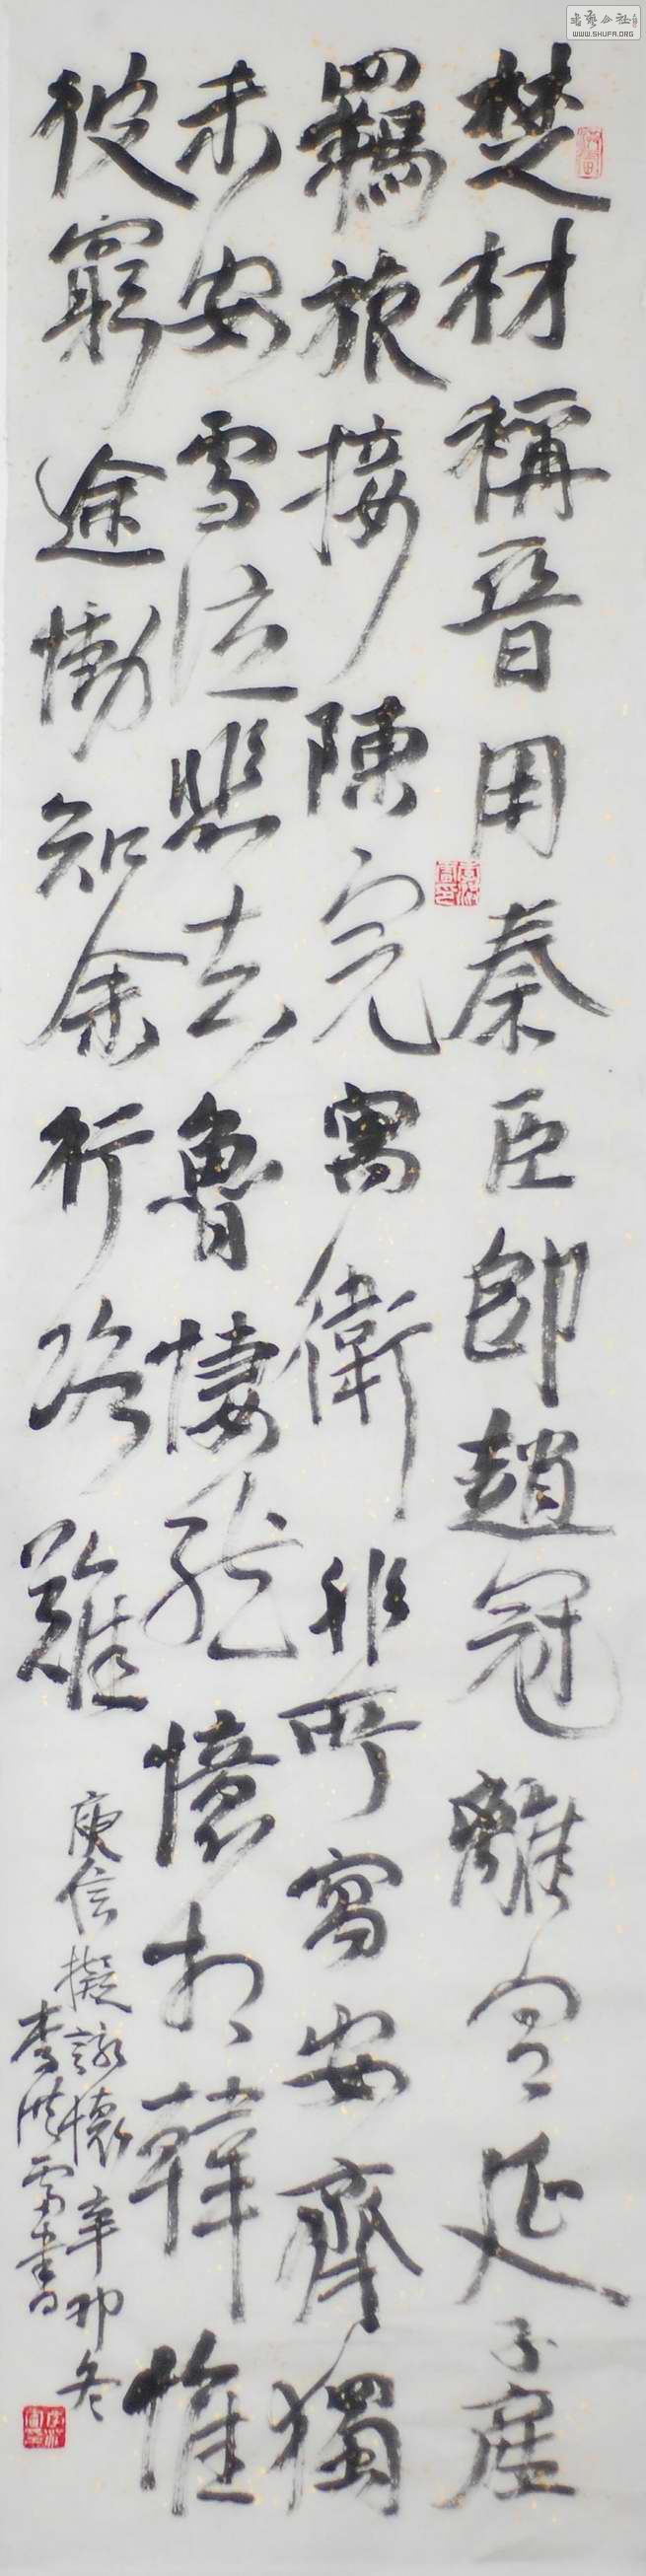 楚材稱晉用秦臣即趙冠離宮延子產
羈旅接陳完寓衛非所寓安齊獨
未安雪泣悲去魯悽然憶相韓惟
彼窮途慟知余行路難
庾信擬詠懷辛卯冬
李洪書
書藝公社
WWW.SHUFA.ORG